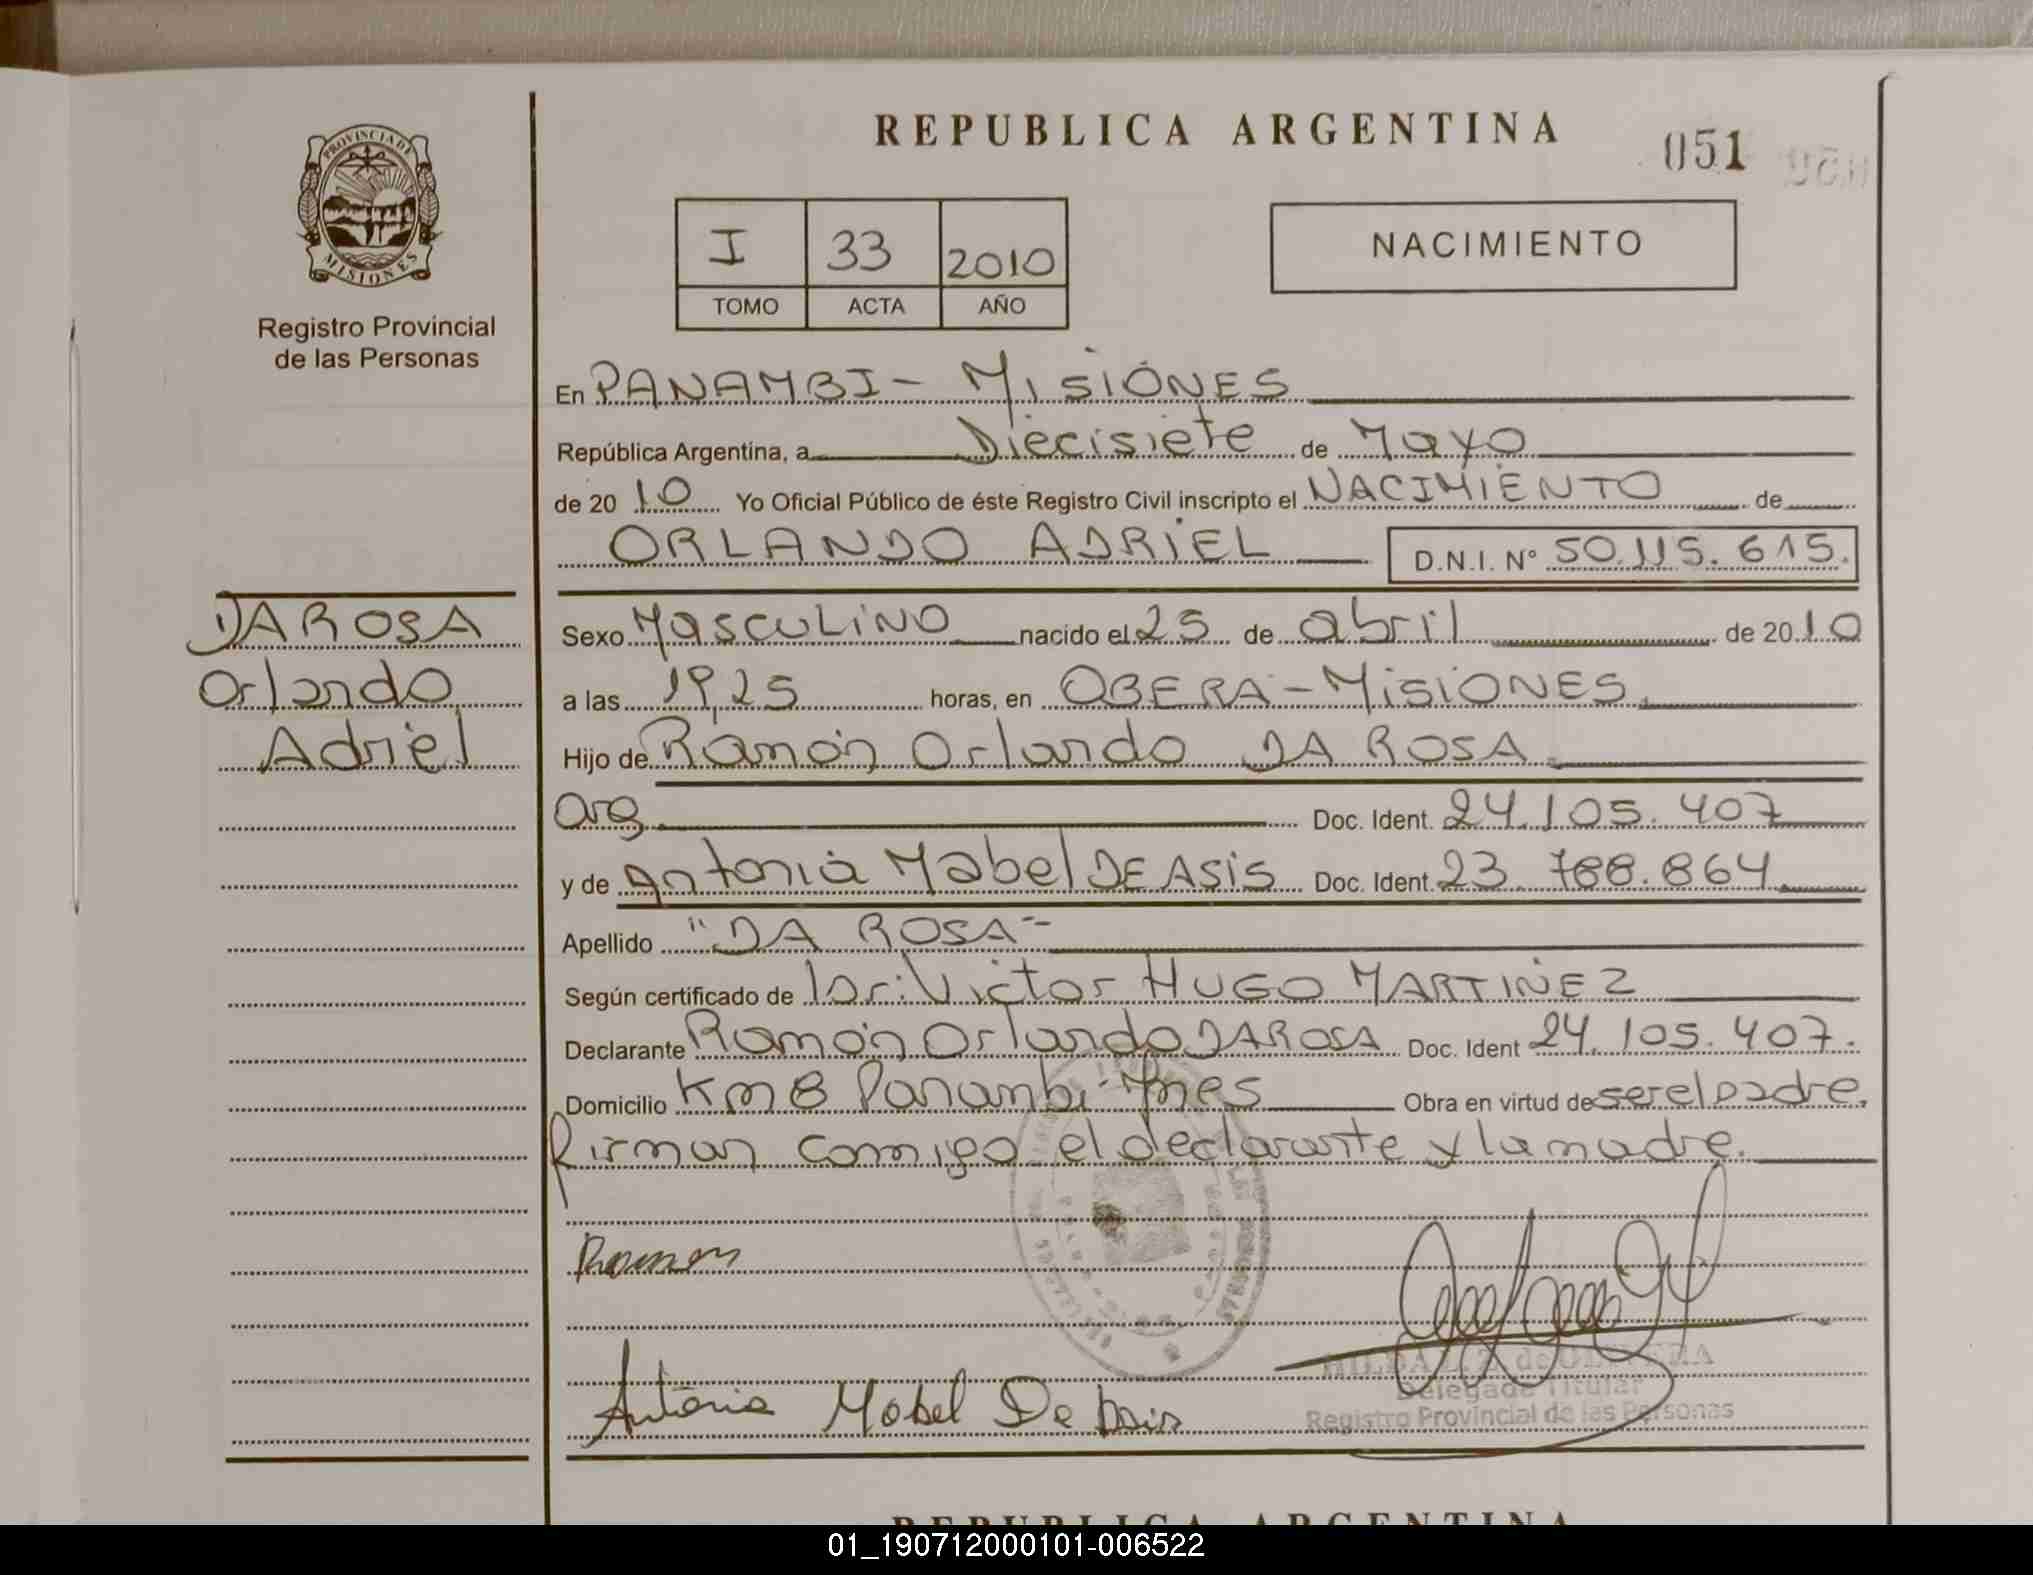 REPUBLICA ARGENTINA
051
PROVINCIA DE
MISIONES
Registro Provincial
de las Personas
I 33 2010
TOMO ACTA AÑO
NACIMIENTO
En PANAMBI - MISIONES
República Argentina, a Diecisiete de Mayo
de 20 10 Yo Oficial Público de éste Registro Civil inscripto el NACIMIENTO de
ORLANDO ADRIEL D.N.I. Nº 50.115.615.
DA ROSA
Orlando
Adriel
Sexo MASCULINO nacido el 25 de abril de 20 10
a las 19,25 horas, en OBERA - MISIONES.
Hijo de Ramón Orlando DA ROSA
Arg. Doc. Ident. 24.105.407
y de Antonia Mabel DE ASIS Doc. Ident. 23.788.864
Apellido "DA ROSA"
Según certificado de Dr: Victor HUGO MARTINEZ
Declarante Ramón Orlando DA ROSA Doc. Ident 24.105.407.
Domicilio Km 8 Panambi - Mnes Obra en virtud de ser el padre.
Firman conmigo el declarante y la madre.
Ramon
Antonia Mabel De Asis
HILDA L. Z. de OLIVERA
Delegada Titular
Registro Provincial de las Personas
REPUBLICA ARGENTINA
01_190712000101-006522